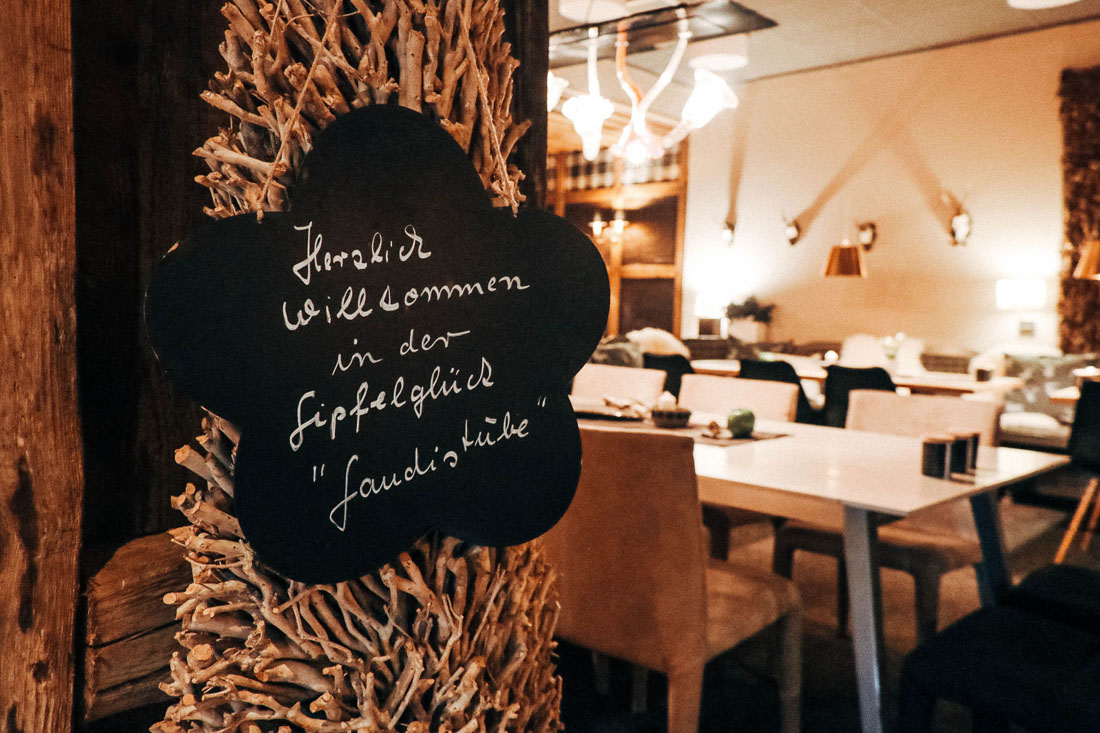 Herzlich
Willkommen
in der
Gipfelglück
"Gaudistube"